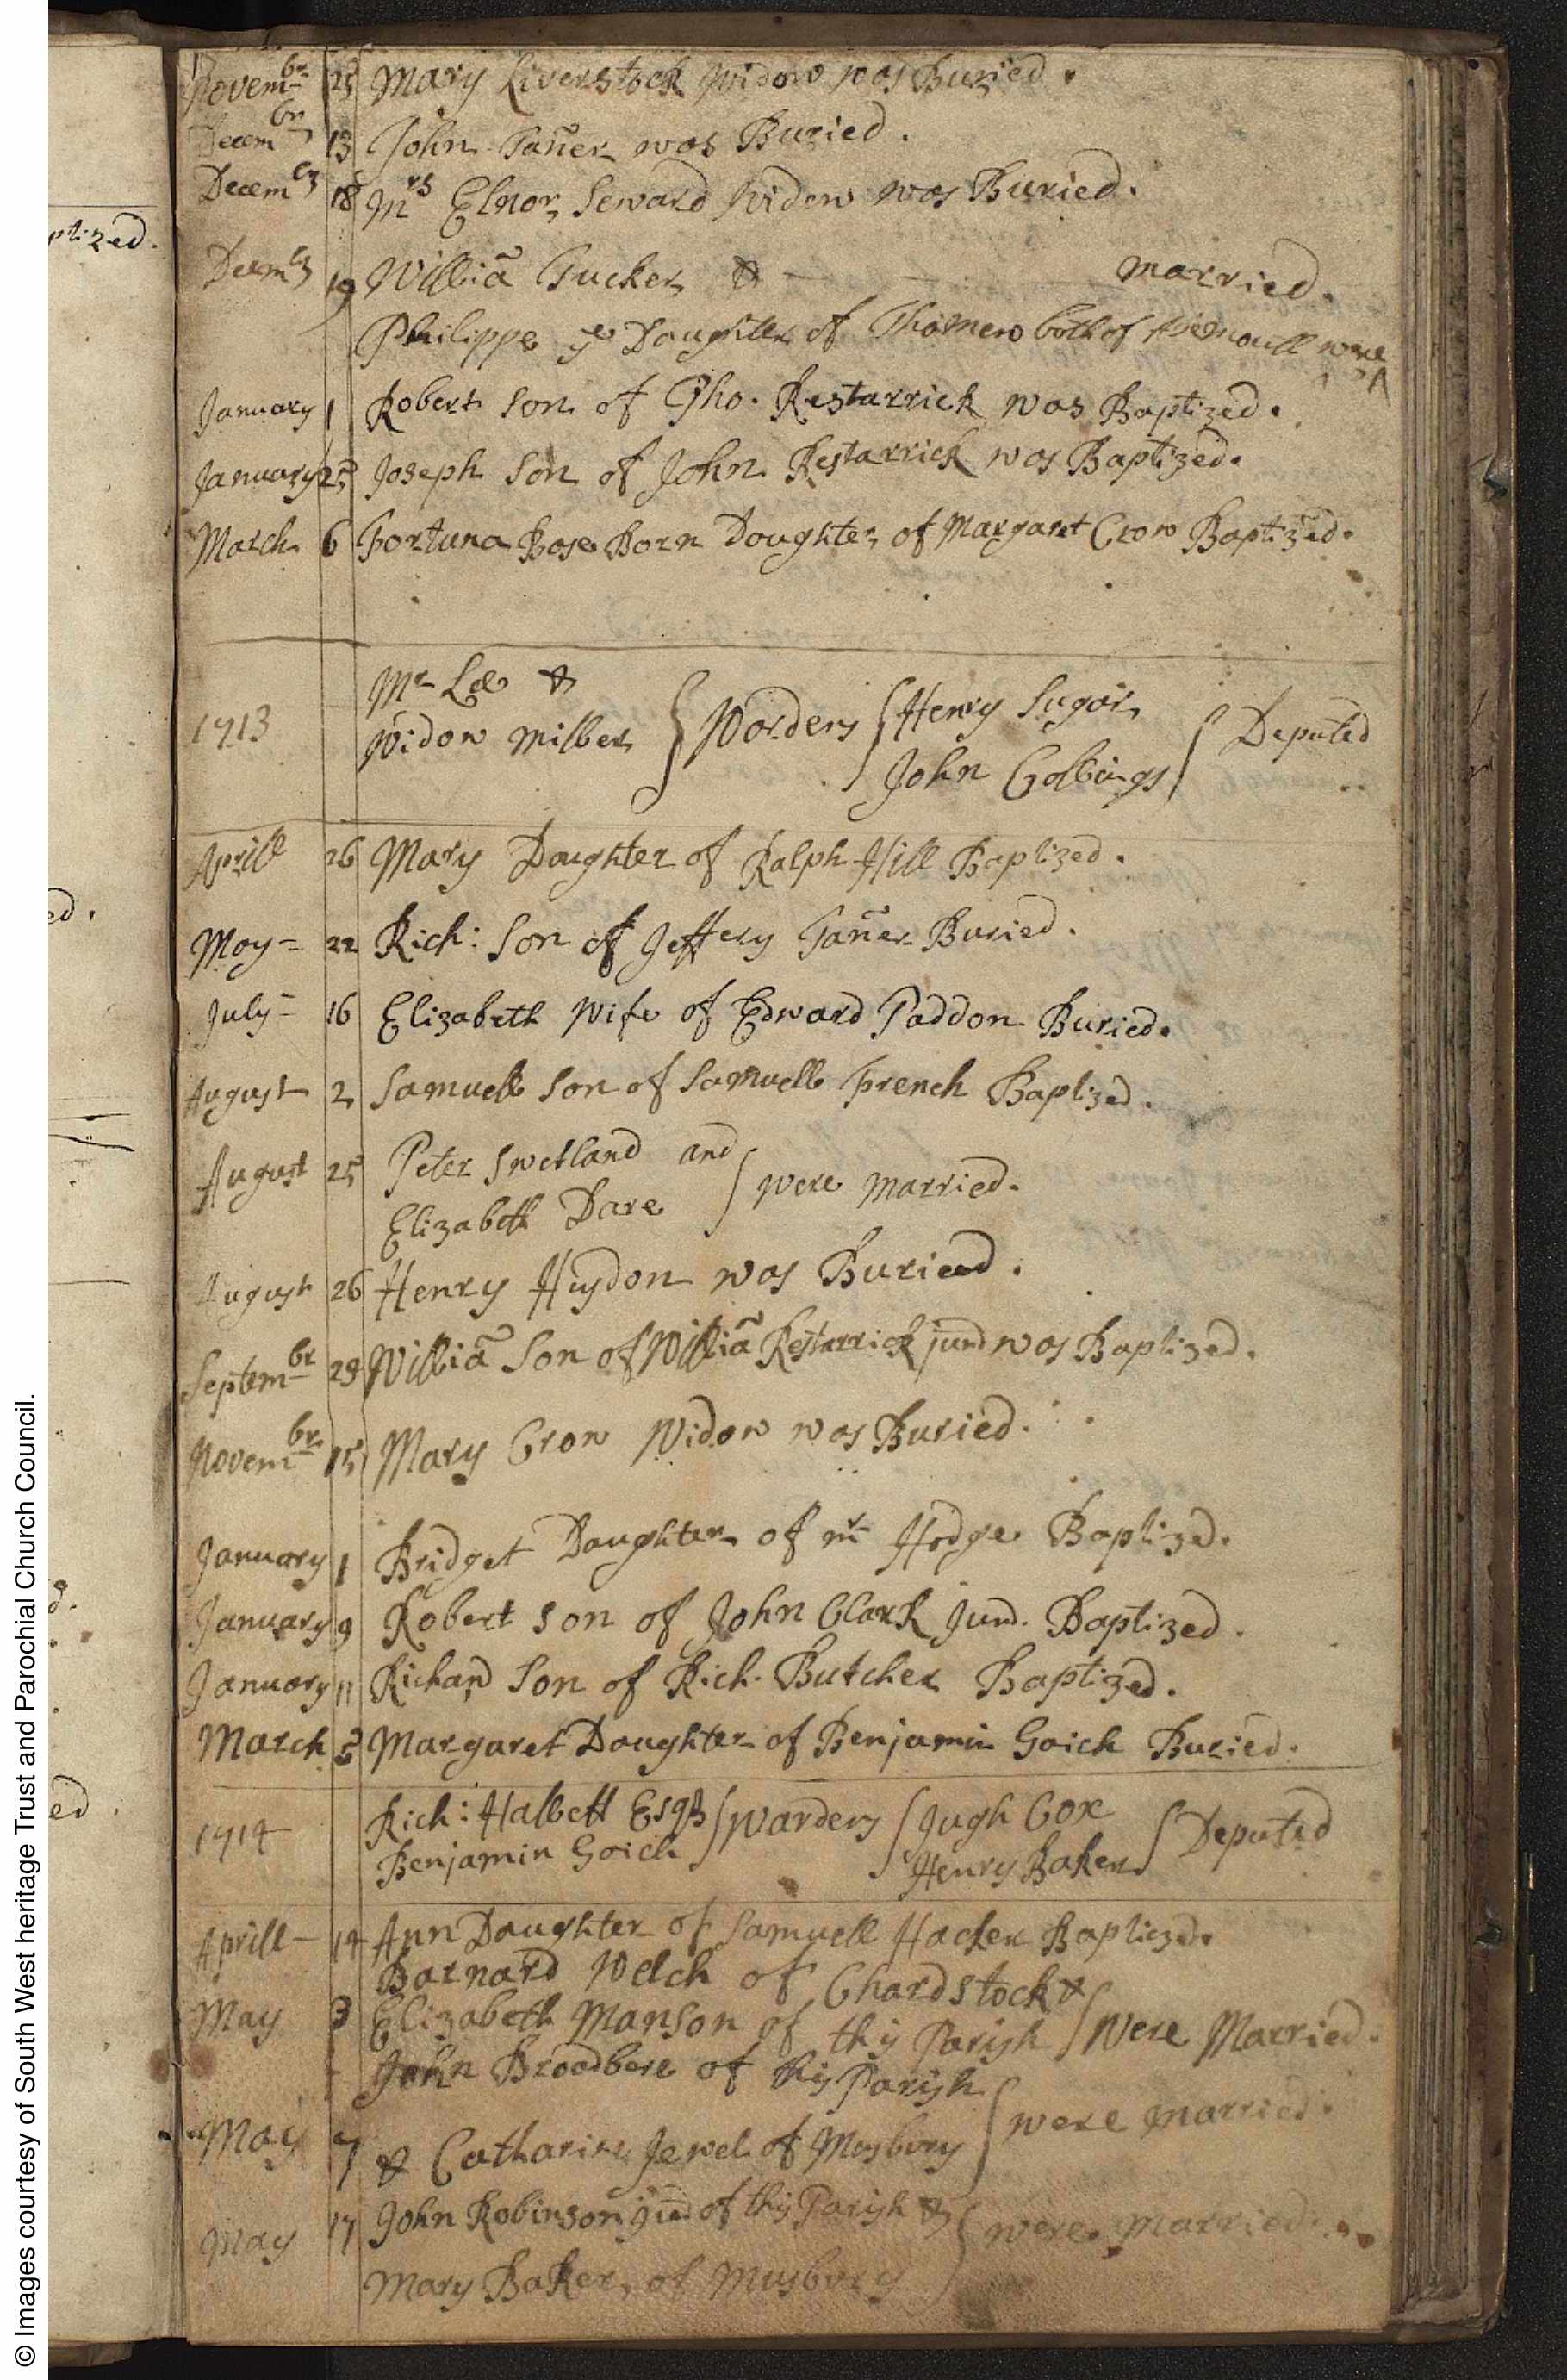 Novem^br 25 Mary Liverstock Widow was Buried.
Decem^br 13 John Tañer was Buried.
Decem^br 18 M^rs Elnor Seward Widow was Buried.
Decm^br 19 Williā Tucker & — married.
Philippe y^e Daughter of Tho: both of were
January 1 Robert Son of Tho. Restarrick was Baptized.
January 25 Joseph Son of John Restarrick was Baptized.
March 6 Fortuna Base Born Daughter of Margaret Crow Baptized.
M^r Lee &
1713 Widow Miller } Wardens { Henry Sugar
John Collings } Deputed
Aprill 26 Mary Daughter of Ralph Hill Baptized.
May = 22 Rich: Son of Jeffery Tañer Buried.
July = 16 Elizabeth Wife of Edward Paddon Buried.
August 2 Samuell Son of Samuell French Baptized.
August 25 Peter Swetland and
Elizabeth Dare } were married.
August 26 Henry Haydon was Buried.
Septem^br 29 Williā Son of Williā Restarrick jun^r was Baptized.
Novem^br 15 Mary Crow Widow was Buried.
January 1 Bridget Daughter of m^r Hodge Baptized.
January 9 Robert Son of John Clark Jun^r. Baptized.
January 11 Richard Son of Rich. Butcher Baptized.
March Margaret Daughter of Benjamin Goich Buried.
1714 Rich: Hallett Esq^r } Warders { Hugh Cox
Benjamin Goich Henry Baker } Deputed
Aprill — 14 Ann Daughter of Samuell Hacker Baptized.
Barnard Welch of Chardstock &
May 3 Elizabeth Manson of this Parish } Were Married.
John Broadbere of this Parish
May 7 & Catharine Jewel of Mosbury } were married.
May 17 John Robinson jun^r of this Parish & } were married.
Mary Baker of Musbury
© Images courtesy of South West heritage Trust and Parochial Church Council.